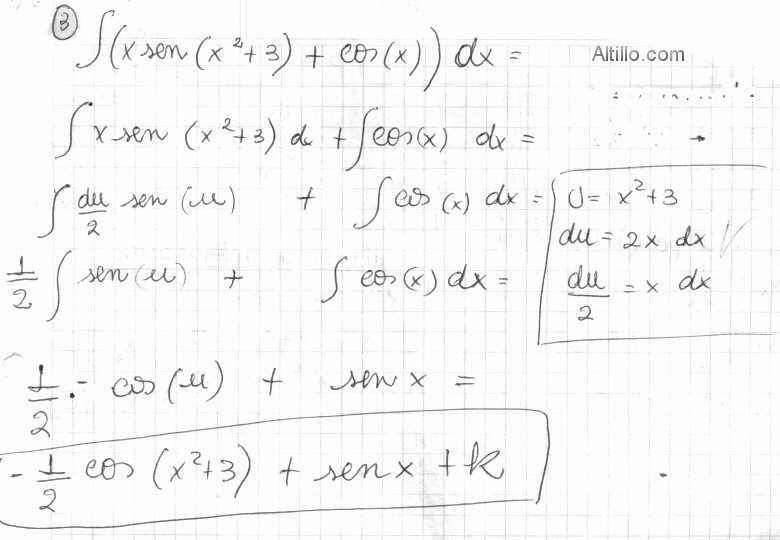 ③ ∫(x sen (x²+3) + cos(x)) dx =
Altillo.com
∫ x sen (x²+3) dx + ∫cos(x) dx =
∫ du/2 sen (u) + ∫ cos (x) dx =
U = x²+3
du = 2x dx
du/2 = x dx
1/2 ∫ sen(u) + ∫ cos(x) dx =
1/2 . - cos(u) + sen x =
- 1/2 cos (x²+3) + sen x + k